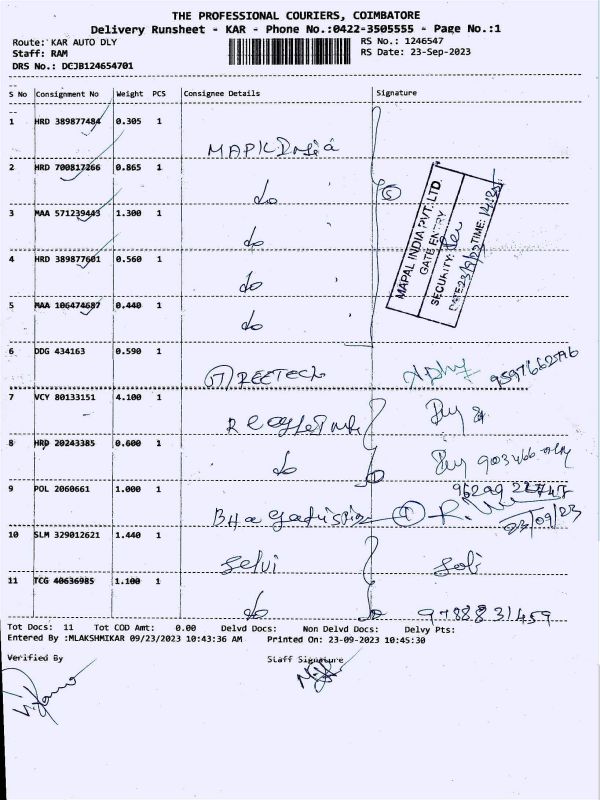 THE PROFESSIONAL COURIERS, COIMBATORE
Delivery Runsheet - KAR - Phone No.:0422-3505555 - Page No.:1
Route: KAR AUTO DLY
RS No.: 1246547
Staff: RAM
RS Date: 23-Sep-2023
DRS No.: DCJB124654701
S No Consignment No Weight PCS Consignee Details Signature
1 HRD 389877484 0.305 1
MAPIL India
2 HRD 700817266 0.865 1
do
5
3 MAA 571239443 1.300 1
do
4 HRD 389877601 0.560 1
do
5 MAA 106474687 0.440 1
do
MAPAL INDIA PVT. LTD
GATE ENTRY
SECURITY:
DATE: 23/9/23 TIME:
6 DDG 434163 0.590 1
GREETECH
7 VCY 80133151 4.100 1
8 HRD 20243385 0.600 1
do
9 POL 2060661 1.000 1
1
23/09/23
10 SLM 329012621 1.440 1
Selvi
11 TCG 40636985 1.100 1
do
9788831459
Tot Docs: 11 Tot COD Amt: 0.00 Delvd Docs: Non Delvd Docs: Delvy Pts:
Entered By :MLAKSHMIKAR 09/23/2023 10:43:36 AM Printed On: 23-09-2023 10:45:30
Verified By Staff Signature